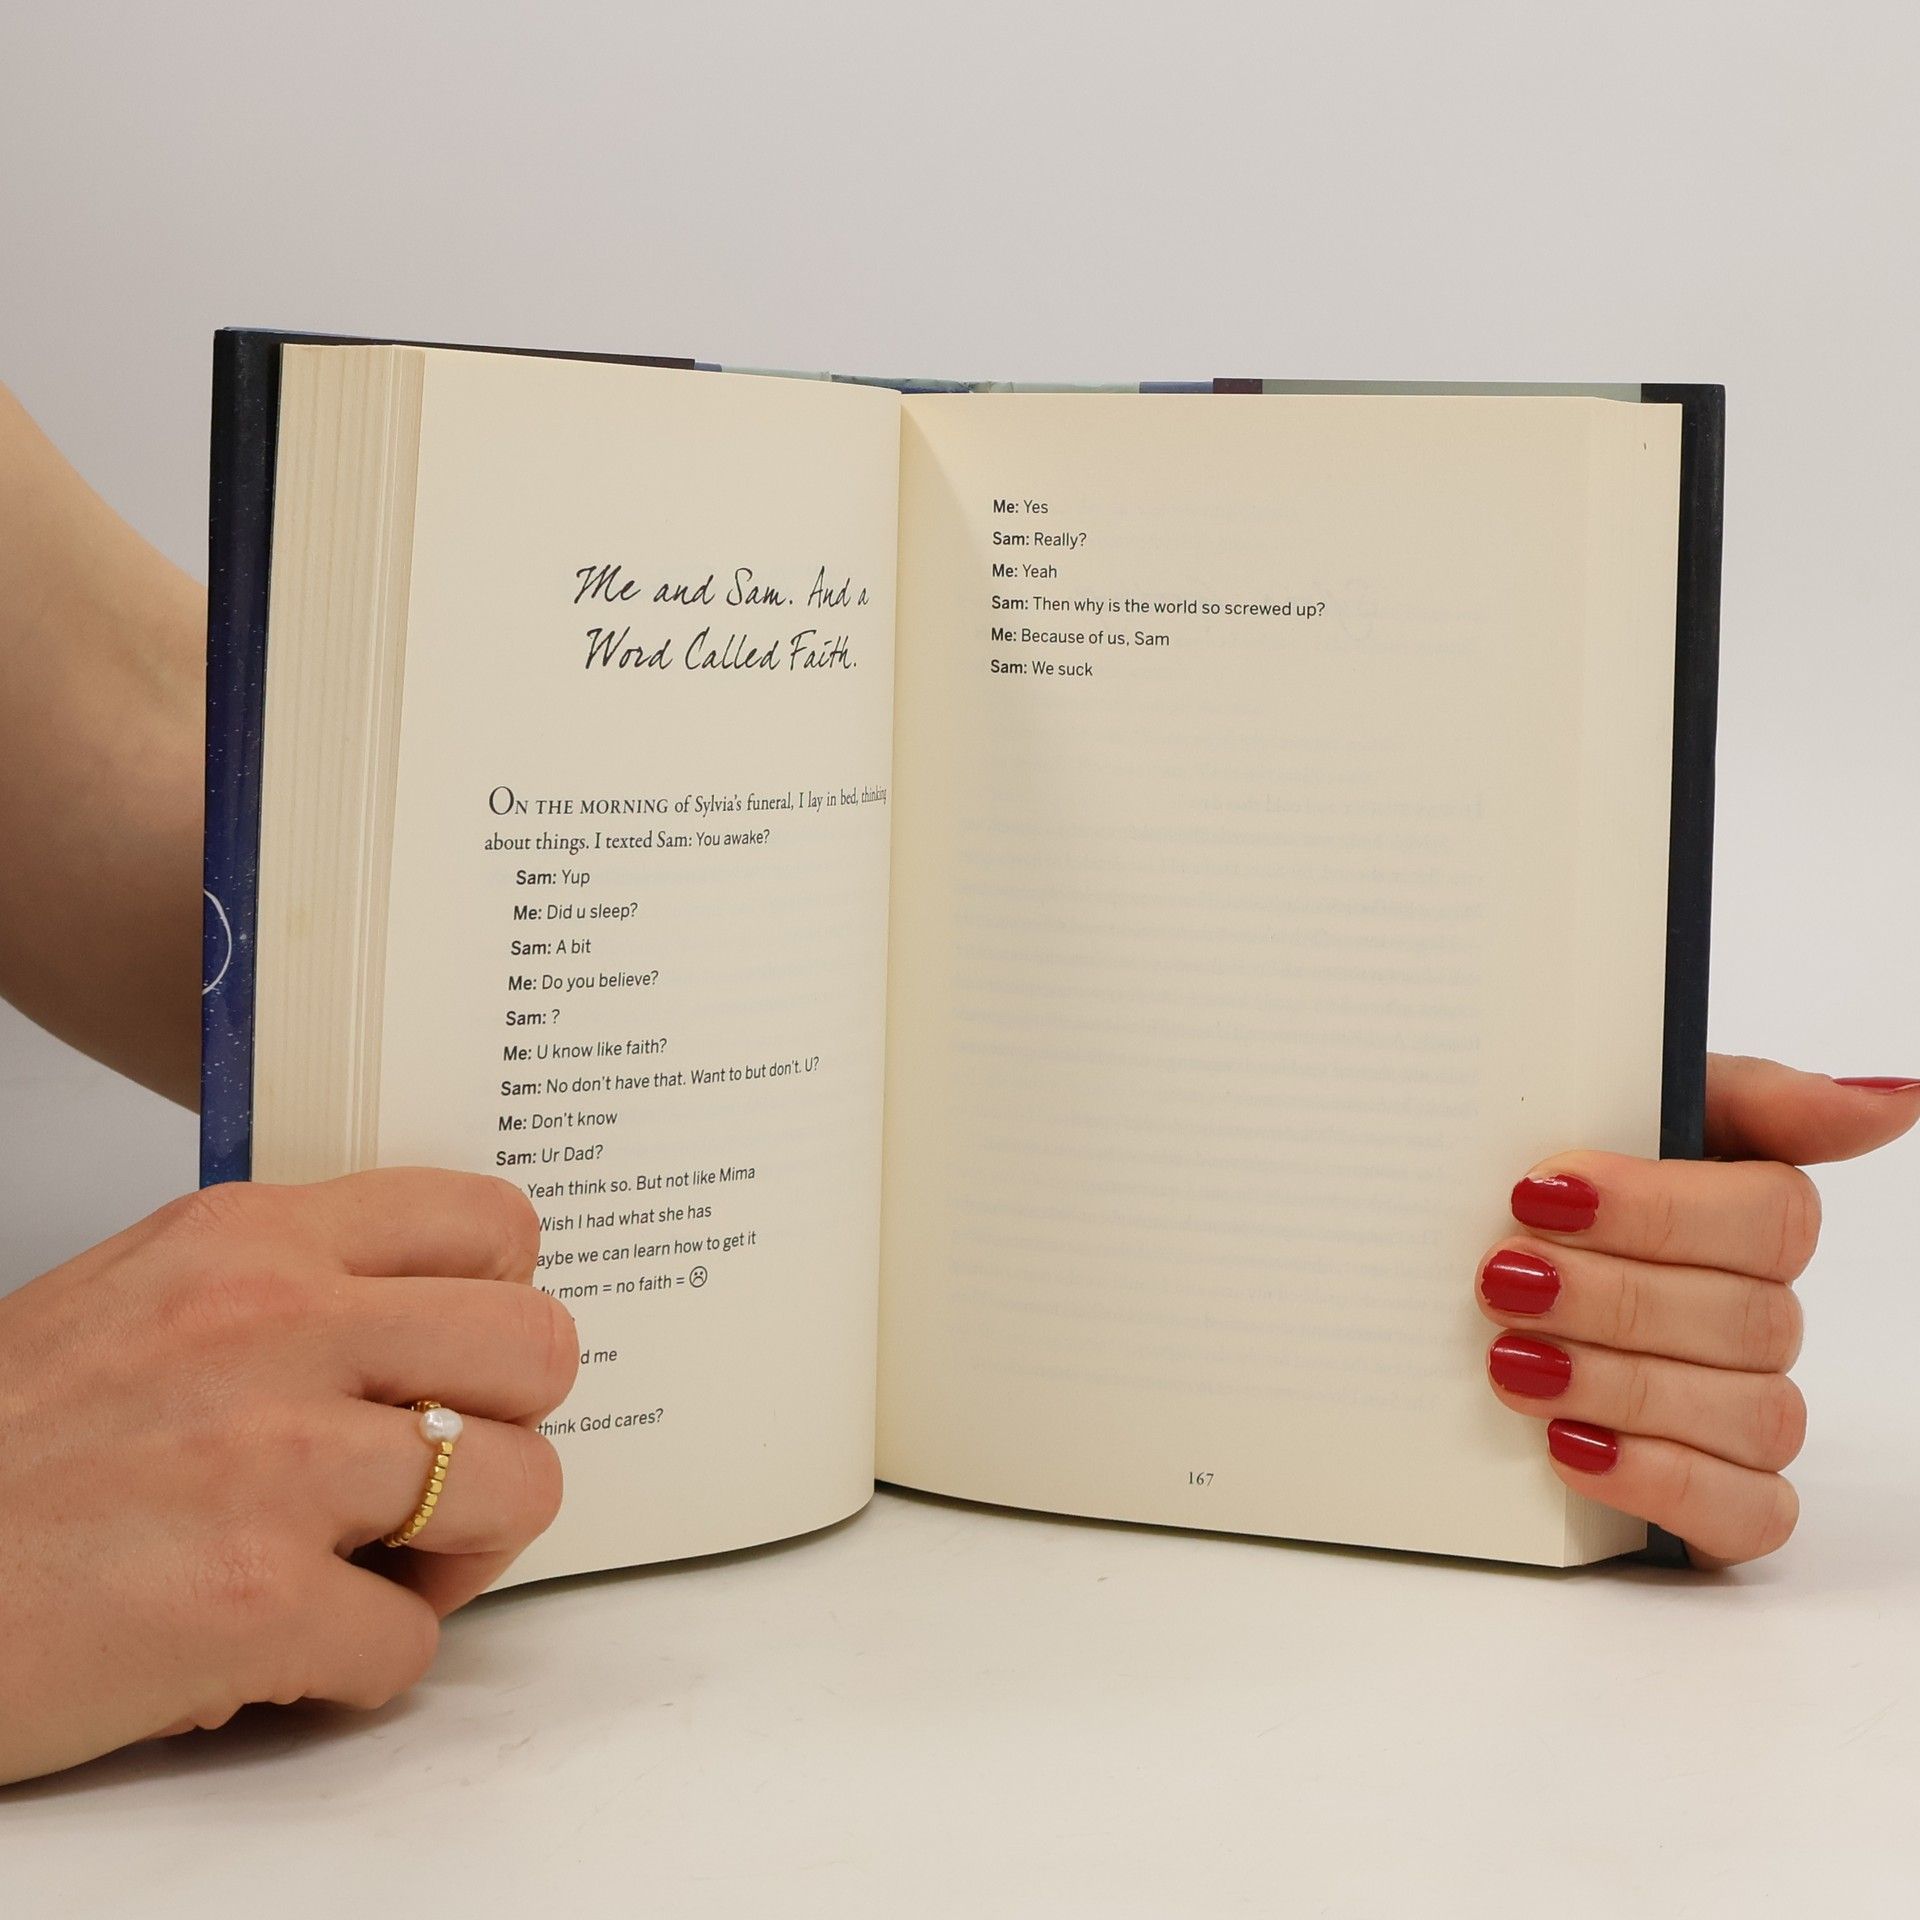 Me and Sam. And a
Word Called Faith.
ON THE MORNING of Sylvia's funeral, I lay in bed, thinking
about things. I texted Sam: You awake?
Sam: Yup
Me: Did u sleep?
Sam: A bit
Me: Do you believe?
Sam: ?
Me: U know like faith?
Sam: No don't have that. Want to but don't. U?
Me: Don't know
Sam: Ur Dad?
Yeah think so. But not like Mima
Wish I had what she has
we can learn how to get it
mom = no faith = ☹
me
think God cares?
Me: Yes
Sam: Really?
Me: Yeah
Sam: Then why is the world so screwed up?
Me: Because of us, Sam
Sam: We suck
167